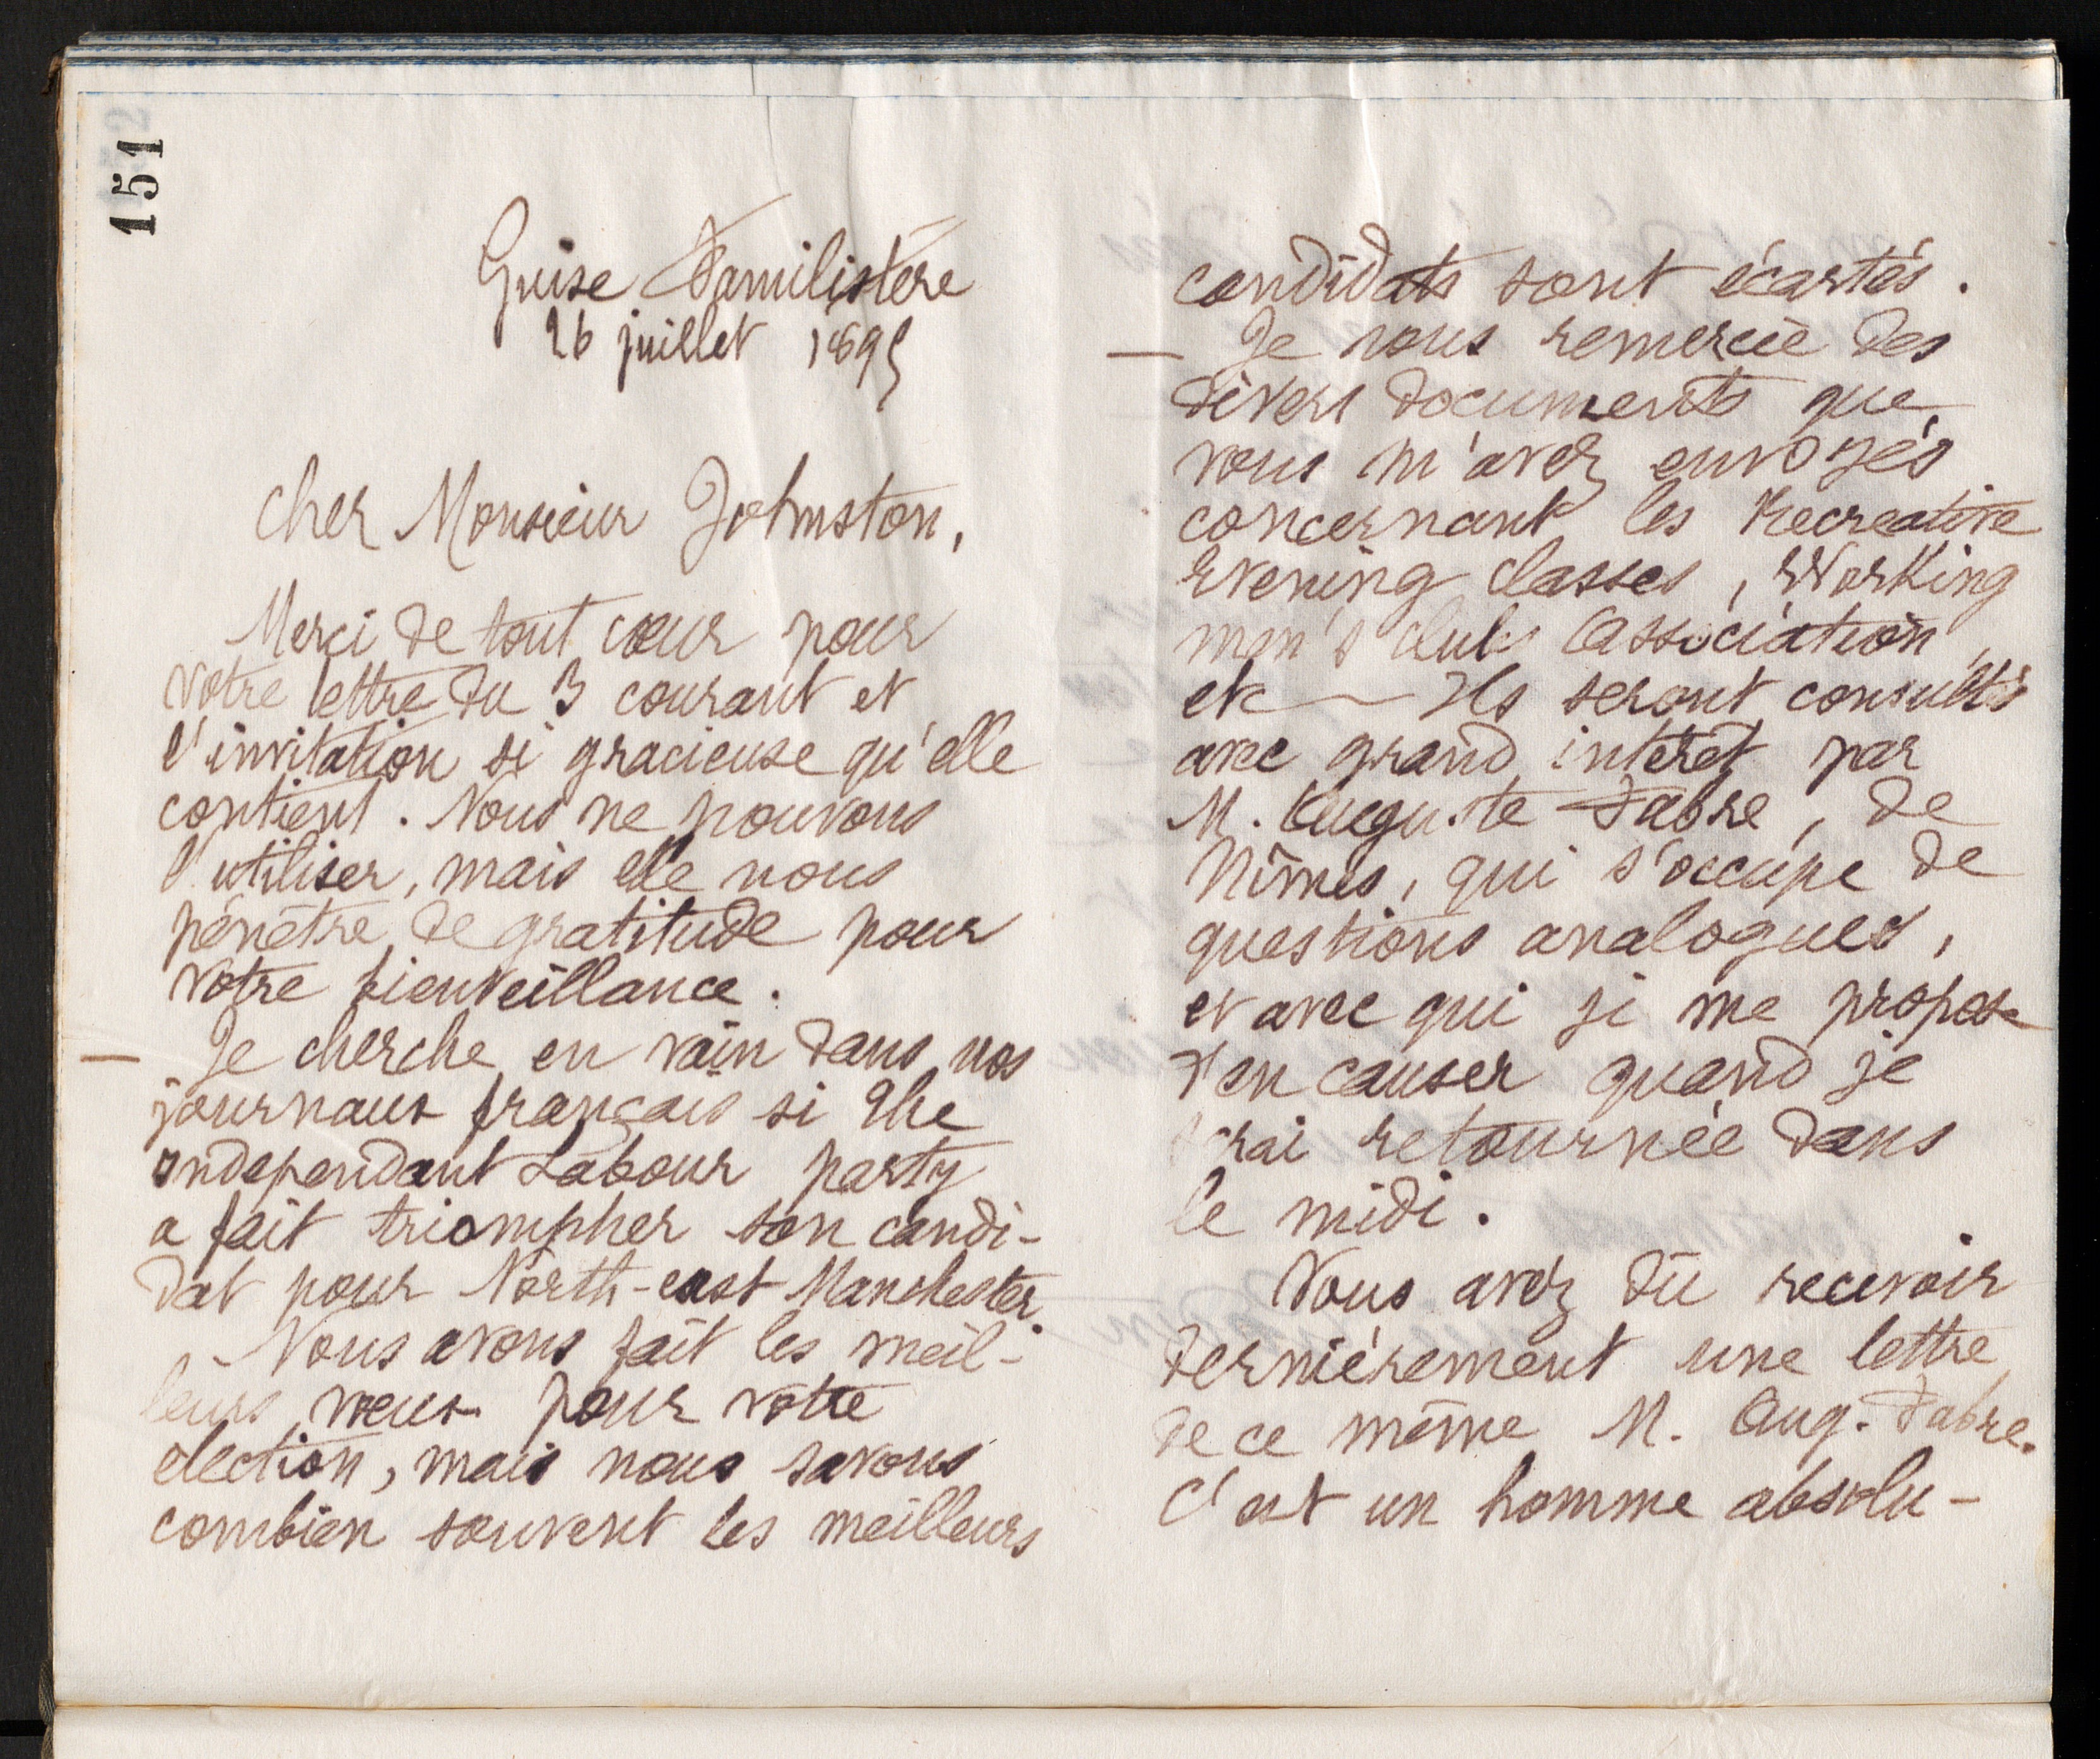 151
Guise Familistère
26 juillet 1895
Cher Monsieur Johnston,
Merci de tout cœur pour
votre lettre du 3 courant et
l'invitation si gracieuse qu'elle
contient. Nous ne pouvons
l'utiliser, mais elle nous
pénètre de gratitude pour
votre bienveillance.
— Je cherche en vain dans nos
journaux français si The
independant Labour party
a fait triompher son candi-
dat pour North-east Manchester.
Nous avons fait les meil-
leurs vœux pour votre
election, mais nous savons
combien souvent les meilleurs
candidats sont écartés.
— Je vous remercie des
divers documents que
vous m'avez envoyés
concernant les Recreative
Evening classes, Working
men's clubs Association,
etc — Ils seront consultés
avec grand intérêt par
M. Auguste Fabre, de
Nîmes, qui s'occupe de
questions analogues,
et avec qui je me propose
d'en causer quand je
serai retournée dans
le midi.
Vous avez dû recevoir
dernièrement une lettre
de ce même M. Aug. Fabre.
C'est un homme absolu-